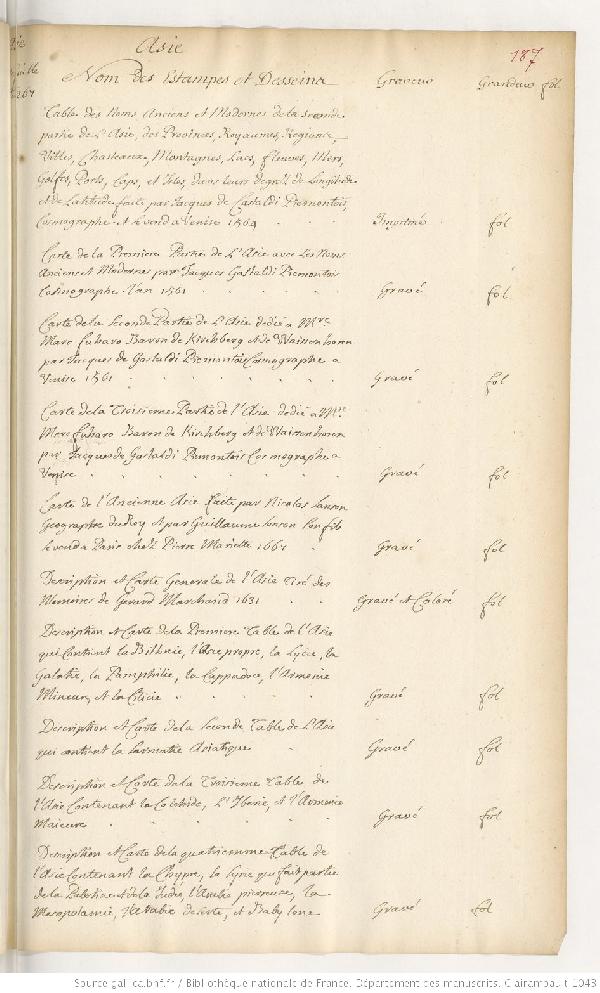 Asie
187
Nom des Estampes et Desseins Graveur Grandeur fol
Table des Noms Anciens et Modernes de la Grande
partie de L'Asie, des Provinces, Royaumes, Regions,
Villes, Chasteaux, Montagnes, Lacs, fleuves, Mers,
Golfes, Ports, Caps, et Isles, dans leurs degrez de Longitude
et de Latitude faite par Jacques de Castaldi Piemontois,
Cosmographe. et se vend a Venise 1564 Imprimée fol
Carte de la Premiere Partie de L'Asie avec Les Noms
Anciens et Modernes par Jacques Gastaldi Piemontois
Cosmographe L'an 1561 Gravé fol
Carte de la Seconde Partie de L'Asie dedié a Mre
Marc fuharo Baron de Kirchberg et de
par Jacques de Gastaldi Piemontois Cosmographe a
Venise 1561 Gravé fol
Carte de la Troisieme Partie de l'Asie dedié a Mre
Marc fuharo Baron de Kirchberg et de
par Jacques de Gastaldi Piemontois Cosmographe a
Venise Gravé fol
Carte de l'Ancienne Asie faite par Nicolas Sanson
Geographe du Roy et par Guillaume Sanson son fils
se vend a Paris chez Pierre Mariette 1667 Gravé fol
Description et Carte Generale de l'Asie Tiré des
Memoires de Gerard Marchand 1631 Gravé et Coloré fol
Description et Carte de la Premiere Table de l'Asie
qui Contient la Bithinie, l'Asie propre, la Lycie, la
Galatie, la Pamphilie, la Cappadoce, l'Armenie
Mineure, et la Cilicie Gravé fol
Description et Carte de la Seconde Table de L'Asie
qui contient la Sarmatie Asiatique Gravé fol
Description et Carte de la Troisieme Table de
l'Asie Contenant la Colchide, L'Iberie, et l'Armenie
Maieure Gravé fol
Description et Carte de la quatriemme Table de
l'Asie Contenant la Chypre, la Syrie qui fait partie
de la Palestine et de la Judée, l'Arabie pierreuse, la
Mesopotamie, l'Arabie deserte, et Babylone Gravé fol
Source gallica.bnf.fr / Bibliothèque nationale de France. Département des manuscrits. Clairambault 1043